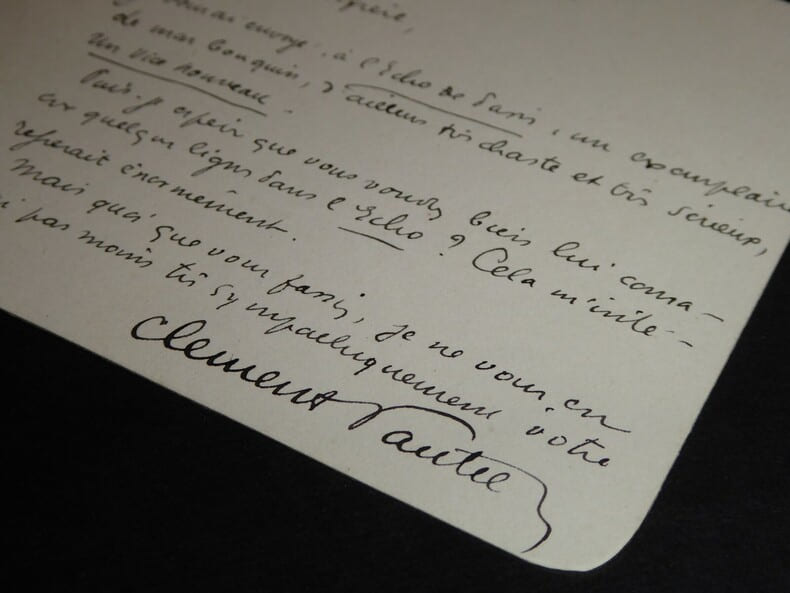 envoyé, à l'Echo de Paris, un exemplaire
de mon bouquin, d'ailleurs très chaste et très sérieux,
Un vice nouveau.
Puis-je espérer que vous voudrez bien lui consa-
crer quelques lignes dans l'Echo? Cela m'inté-
resserait énormément.
Mais quoi que vous fassiez, je ne vous en
pas moins très sympathiquement votre
Clément Vautel